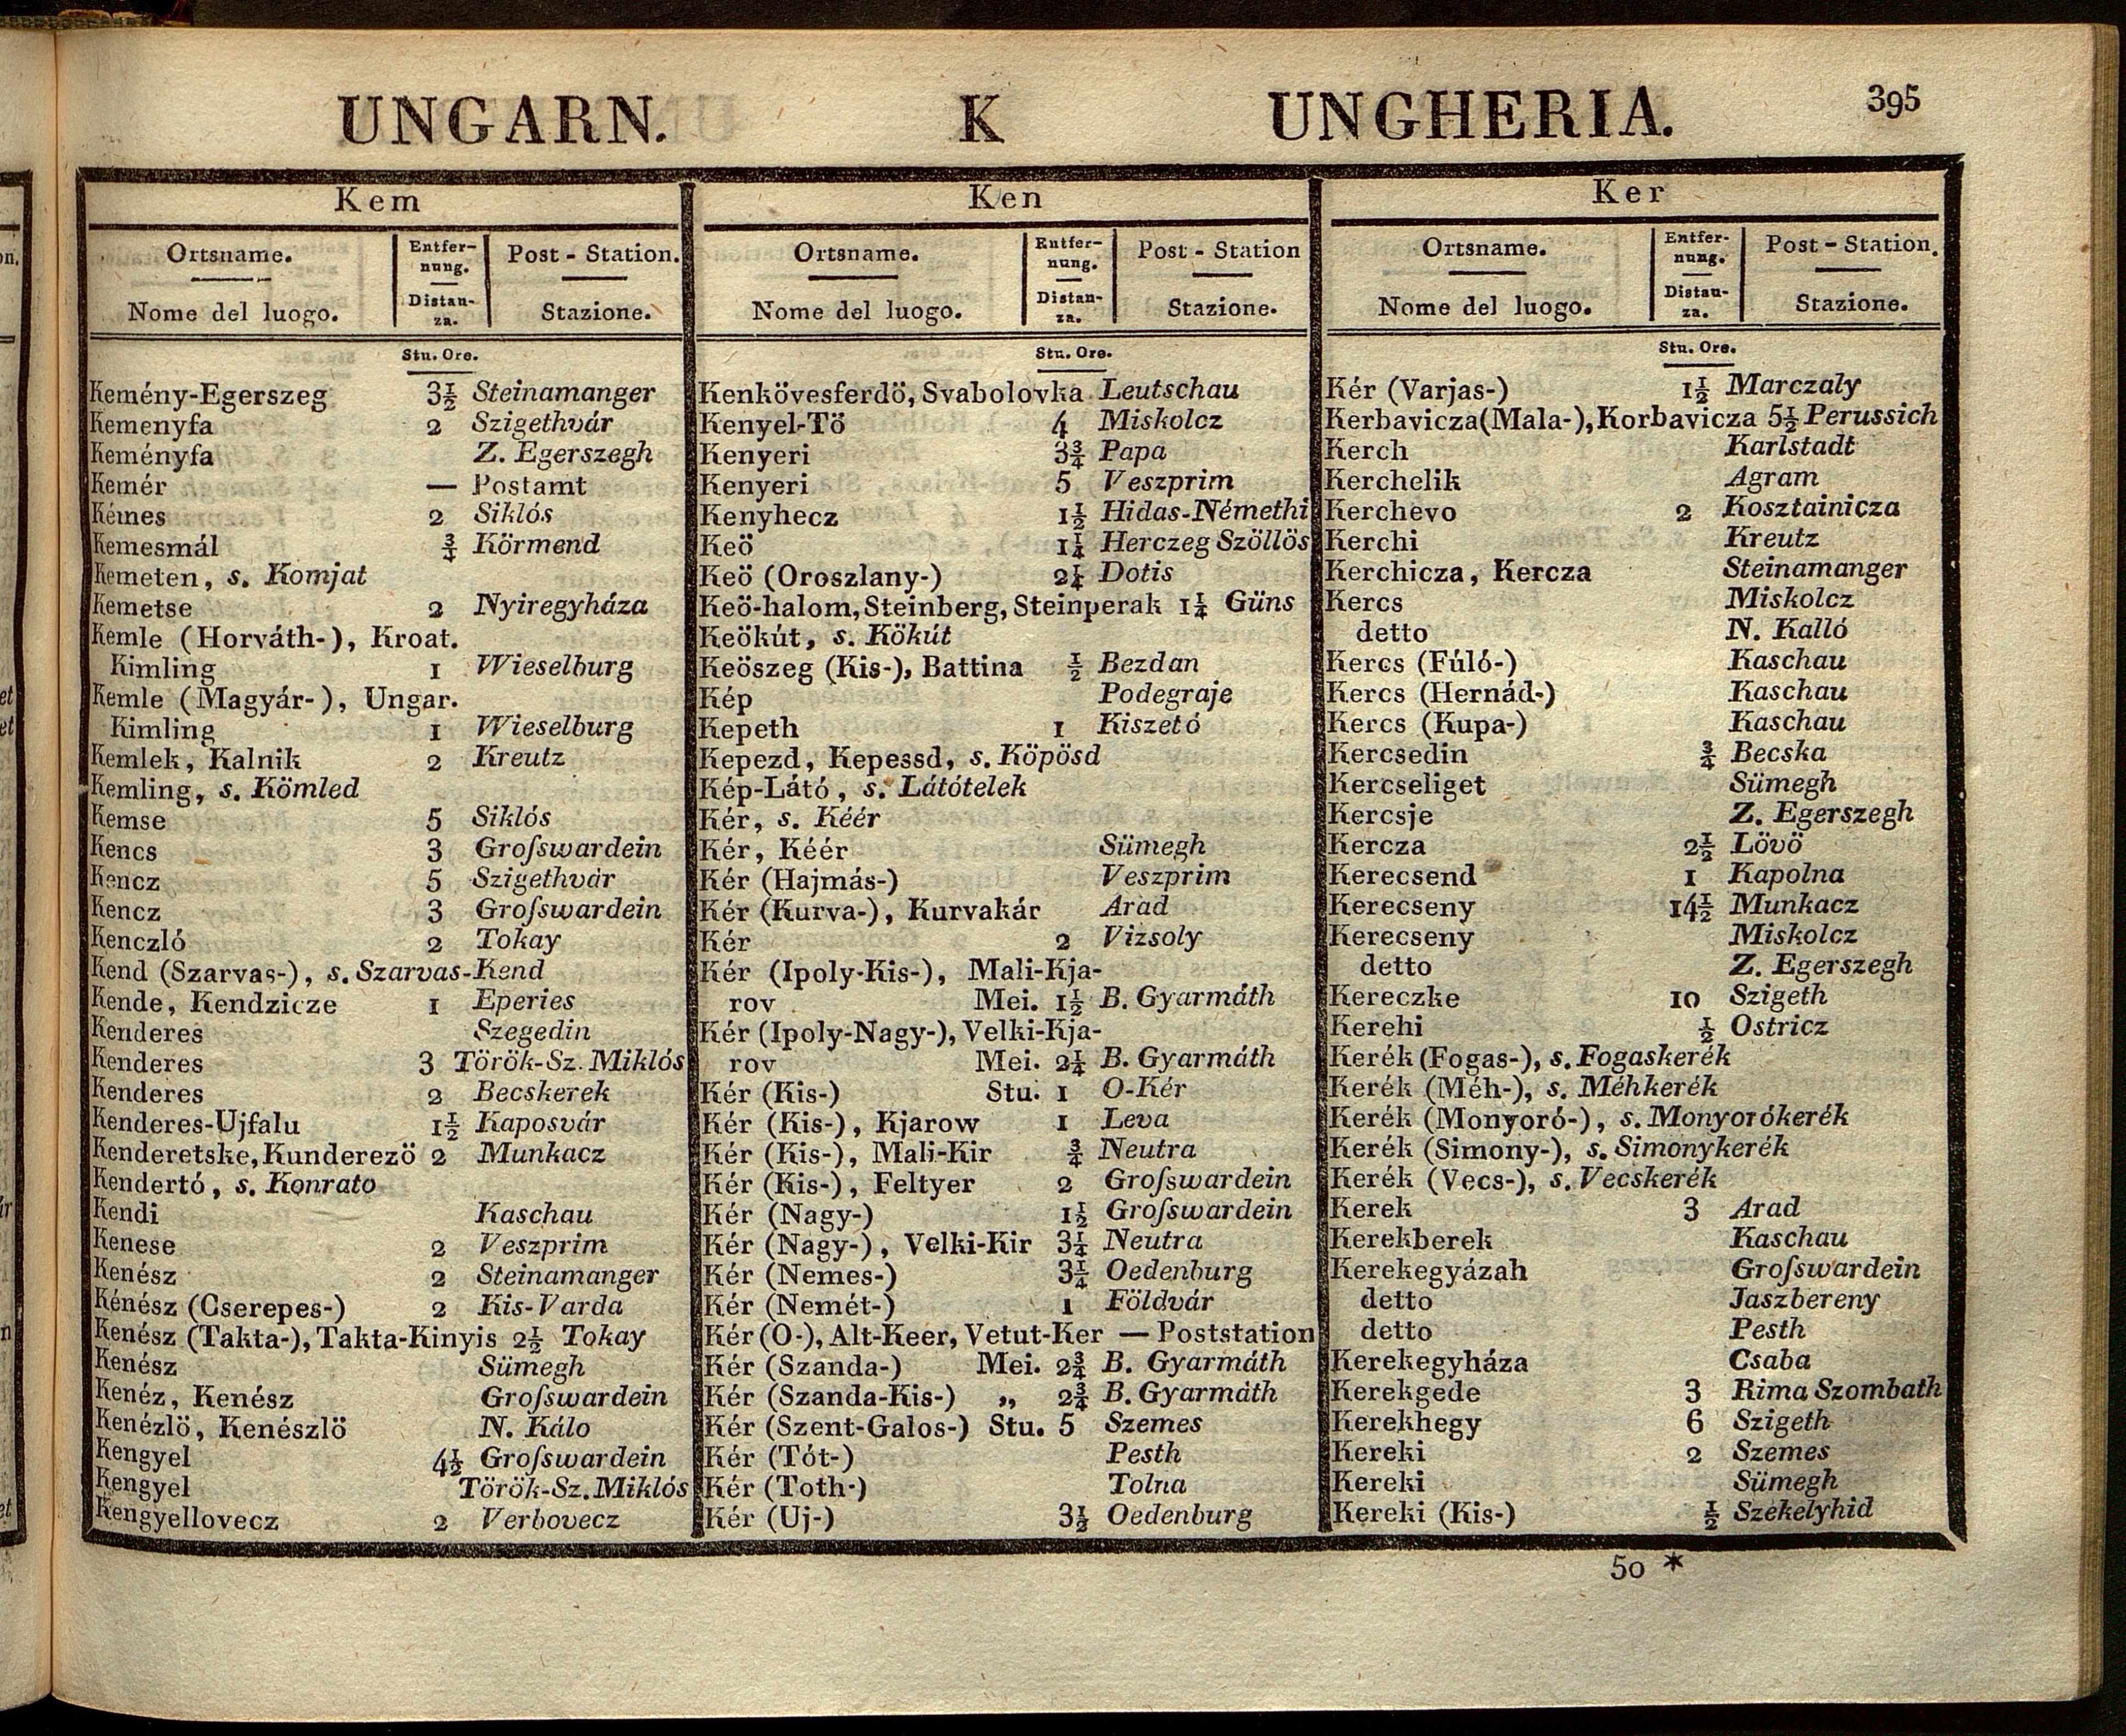 UNGARN. K UNGHERIA. 395
Kem
Ortsname. Entfer-nung. Post - Station.
Nome del luogo. Distan-za. Stazione.
Stu. Ore.
Kemény-Egerszeg 3½ Steinamanger
Kemenyfa 2 Szigethvár
Keményfa Z. Egerszegh
Kemér — Postamt
Kémes 2 Siklós
Kemesmál ¾ Körmend
Kemeten, s. Komjat
Kemetse 2 Nyiregyháza
Kemle (Horváth-), Kroat.
Kimling 1 Wieselburg
Kemle (Magyár-), Ungar.
Kimling 1 Wieselburg
Kemlek, Kalnik 2 Kreutz
Kemling, s. Kömled
Kemse 5 Siklós
Kencs 3 Groſswardein
Kencz 5 Szigethvár
Kencz 3 Groſswardein
Kenczló 2 Tokay
Kend (Szarvas-), s. Szarvas-Kend
Kende, Kendzicze 1 Eperies
Kenderes Szegedin
Kenderes 3 Török-Sz. Miklós
Kenderes 2 Becskerek
Kenderes-Ujfalu 1½ Kaposvár
Kenderetske, Kunderezö 2 Munkacz
Kendertó, s. Konrato
Kendi Kaschau
Kenese 2 Veszprim
Kenész 2 Steinamanger
Kénész (Cserepes-) 2 Kis-Varda
Kenész (Takta-), Takta-Kinyis 2½ Tokay
Kenész Sümegh
Kenéz, Kenész Groſswardein
Kenézlö, Kenészlö N. Kálo
Kengyel 4½ Groſswardein
Kengyel Török-Sz. Miklós
Kengyellovecz 2 Verbovecz
Ken
Ortsname. Entfer-nung. Post - Station
Nome del luogo. Distan-za. Stazione.
Stu. Ore.
Kenkövesferdö, Svabolovka Leutschau
Kenyel-Tö 4 Miskolcz
Kenyeri 3¾ Papa
Kenyeri 5 Veszprim
Kenyhecz 1½ Hidas-Némethi
Keö 1¼ Herczeg Szöllös
Keö (Oroszlany-) 2¼ Dotis
Keö-halom, Steinberg, Steinperak 1¼ Güns
Keökút, s. Kökút
Keöszeg (Kis-), Battina ½ Bezdan
Kép Podegraje
Kepeth 1 Kiszetó
Kepezd, Kepessd, s. Köpösd
Kép-Látó, s. Látótelek
Kér, s. Kéér
Kér, Kéér Sümegh
Kér (Hajmás-) Veszprim
Kér (Kurva-), Kurvakér Arad
Kér 2 Vizsoly
Kér (Ipoly-Kis-), Mali-Kja-
rov Mei. 1½ B. Gyarmáth
Kér (Ipoly-Nagy-), Velki-Kja-
rov Mei. 2¼ B. Gyarmáth
Kér (Kis-) Stu. 1 O-Kér
Kér (Kis-), Kjarow 1 Leva
Kér (Kis-), Mali-Kir ¾ Neutra
Kér (Kis-), Feltyer 2 Groſswardein
Kér (Nagy-) 1½ Groſswardein
Kér (Nagy-), Velki-Kir 3¼ Neutra
Kér (Nemes-) 3¼ Oedenburg
Kér (Nemét-) 1 Földvár
Kér (O-), Alt-Keer, Vetut-Ker — Poststation
Kér (Szanda-) Mei. 2¾ B. Gyarmáth
Kér (Szanda-Kis-) „ 2¾ B. Gyarmáth
Kér (Szent-Galos-) Stu. 5 Szemes
Kér (Tót-) Pesth
Kér (Toth-) Tolna
Kér (Uj-) 3½ Oedenburg
Ker
Ortsname. Entfer-nung. Post - Station.
Nome del luogo. Distan-za. Stazione.
Stu. Ore.
Kér (Varjas-) 1½ Marczaly
Kerbavicza (Mala-), Korbavicza 5½ Perussich
Kerch Karlstadt
Kerchelik Agram
Kerchevo 2 Kosztainicza
Kerchi Kreutz
Kerchicza, Kercza Steinamanger
Kercs Miskolcz
detto N. Kalló
Kercs (Fúló-) Kaschau
Kercs (Hernád-) Kaschau
Kercs (Kupa-) Kaschau
Kercsedin ¾ Becska
Kercseliget Sümegh
Kercsje Z. Egerszegh
Kercza 2½ Lövö
Kerecsend 1 Kapolna
Kerecseny 14½ Munkacz
Kerecseny Miskolcz
detto Z. Egerszegh
Kereczke 10 Szigeth
Kerehi ½ Ostricz
Kerék (Fogas-), s. Fogaskerék
Kerék (Méh-), s. Méhkerék
Kerék (Monyoró-), s. Monyorókerék
Kerék (Simony-), s. Simonykerék
Kerék (Vecs-), s. Vecskerék
Kerek 3 Arad
Kerekberek Kaschau
Kerekegyázah Groſswardein
detto Jaszbereny
detto Pesth
Kerekegyháza Csaba
Kerekgede 3 Rima Szombath
Kerekhegy 6 Szigeth
Kereki 2 Szemes
Kereki Sümegh
Kereki (Kis-) ½ Szekelyhid
50 *